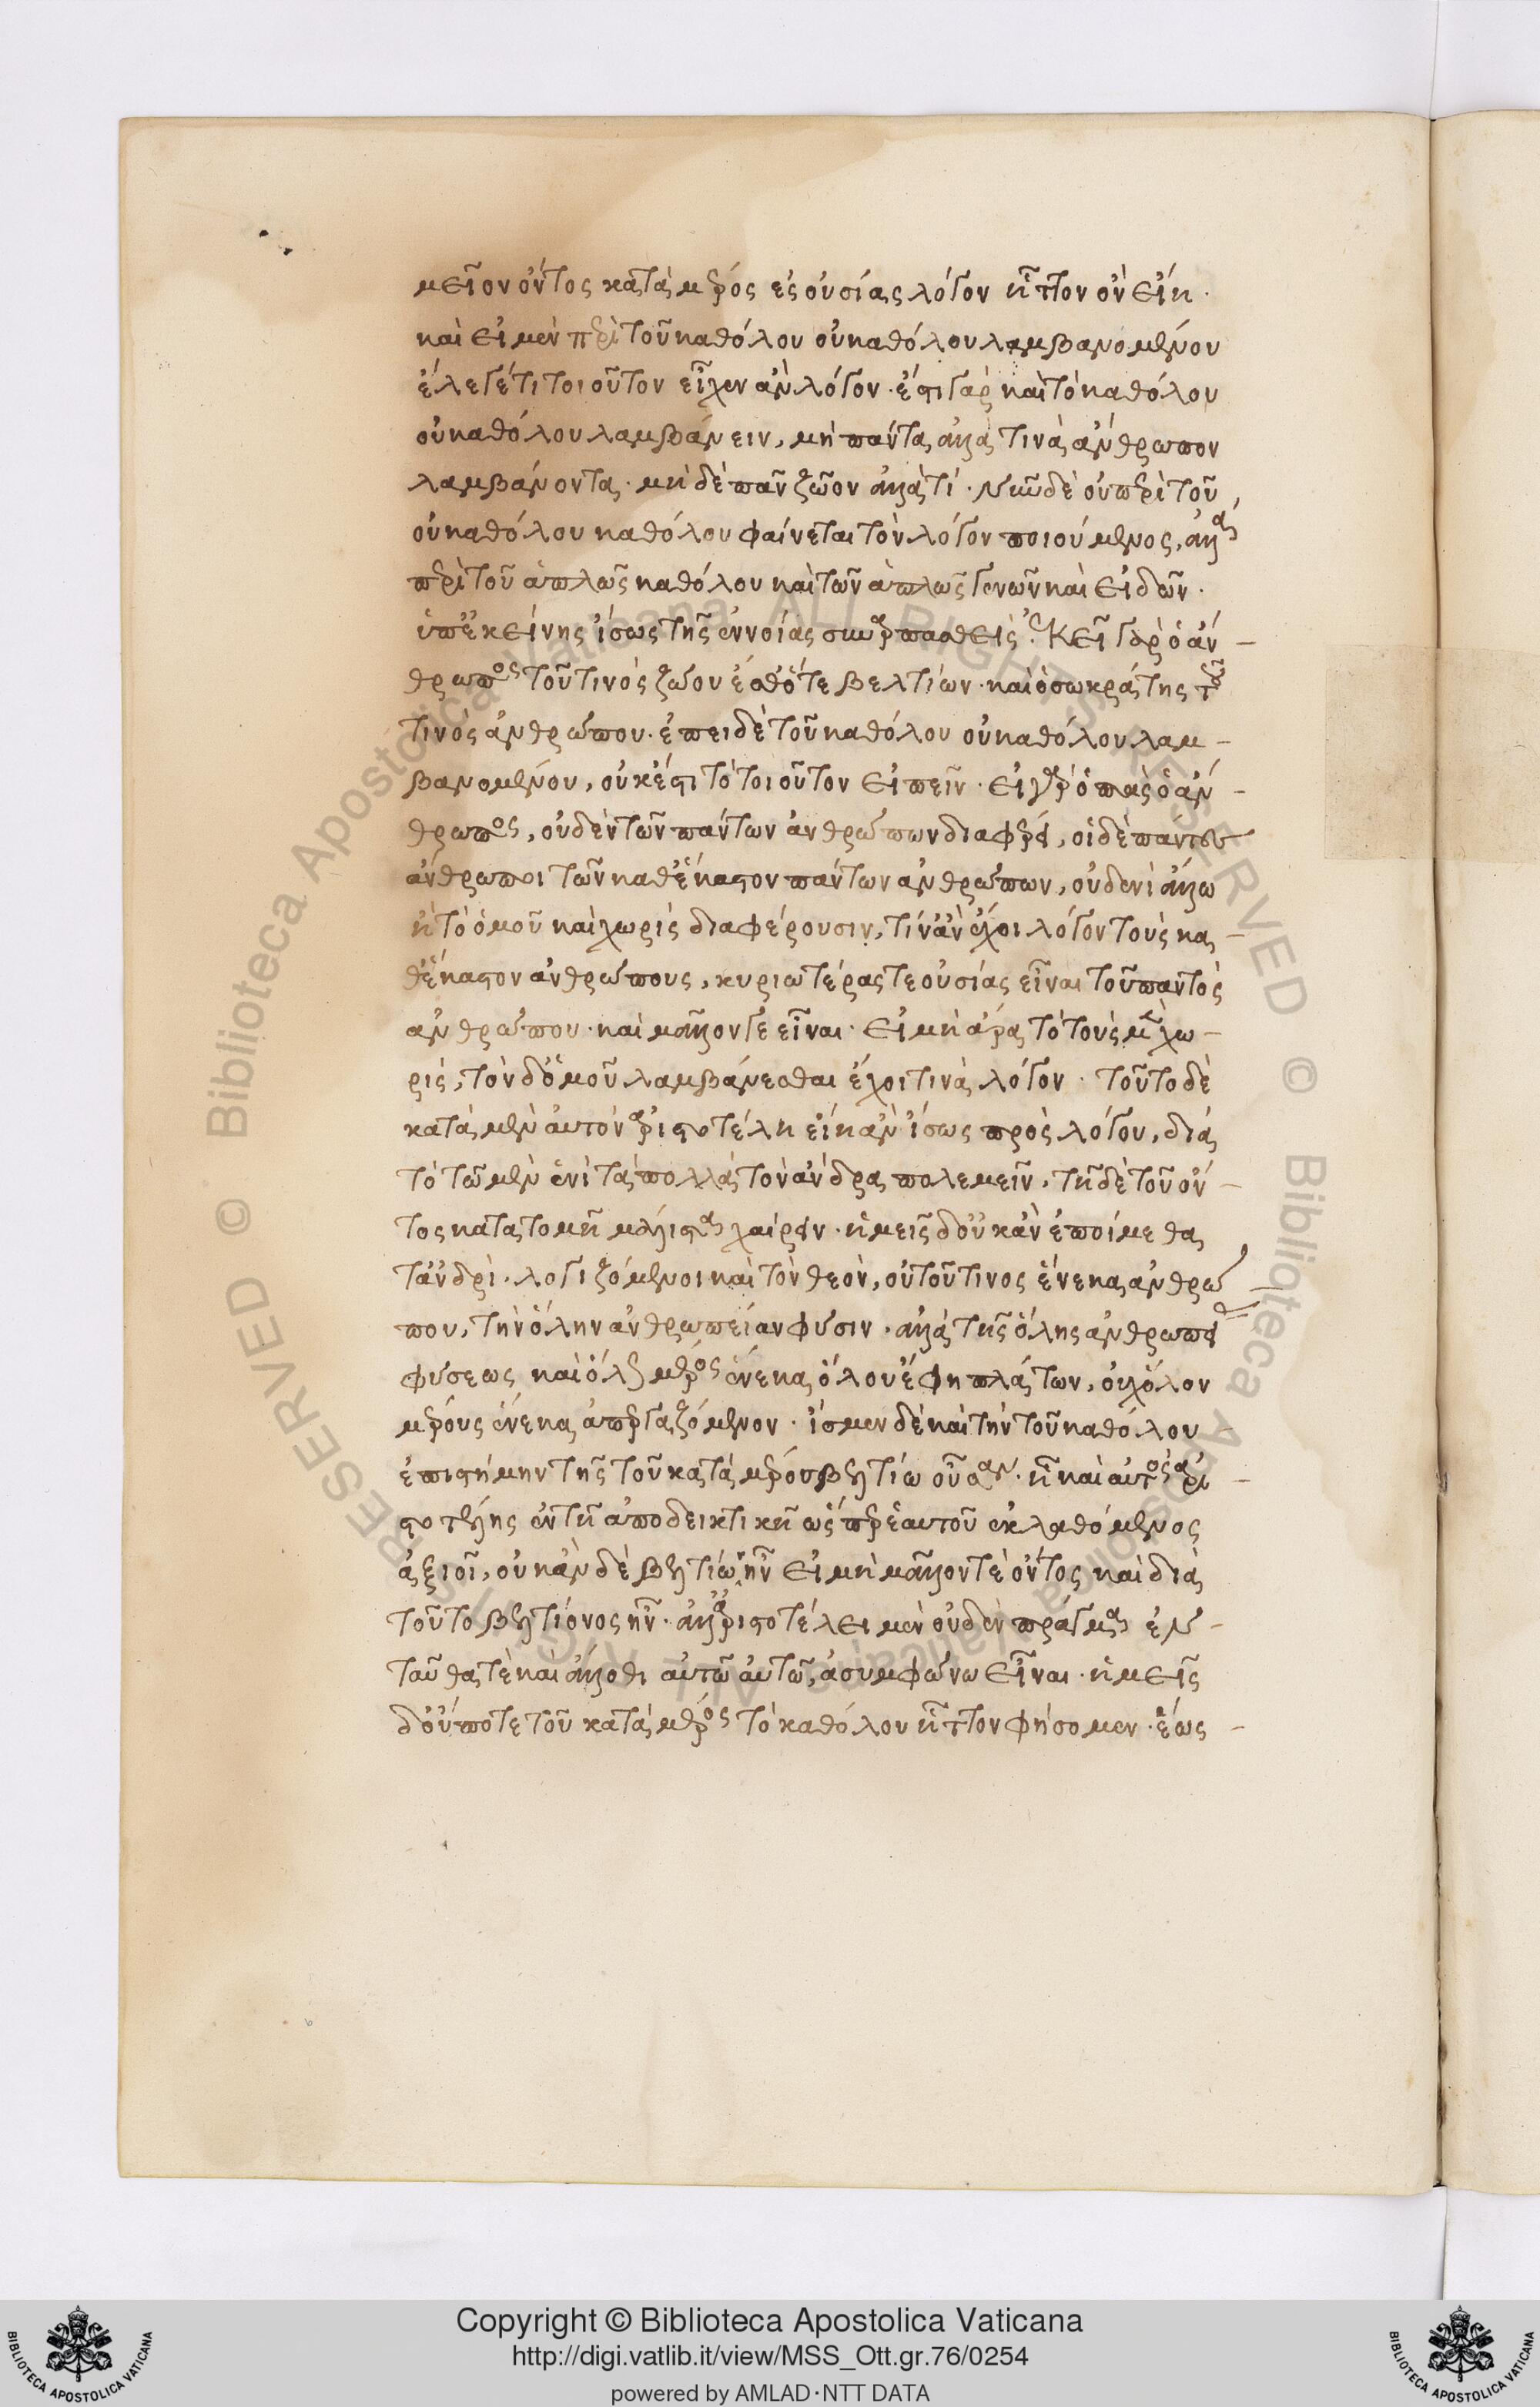 μεῖον ὄντος κατὰ μέρος ἐς οὐσίας λόγον ἧττον ὂν εἴη.
καὶ εἰ μὲν περὶ τοῦ καθόλου οὐ καθόλου λαμβανομένου
ἔλεγέ τι τοιοῦτον εἶχεν ἂν λόγον. ἔστι γὰρ καὶ τὸ καθόλου
οὐ καθόλου λαμβάνειν, μὴ πάντα ἀλλά τινα ἄνθρωπον
λαμβάνοντα. μὴ δὲ πᾶν ζῶον ἀλλά τί. νῦν δὲ οὐ περὶ τοῦ
οὐ καθόλου καθόλου φαίνεται τὸν λόγον ποιούμενος, ἀλλὰ
περὶ τοῦ ἁπλῶς καθόλου καὶ τῶν ἁπλῶς γενῶν καὶ εἰδῶν.
ὑπ' ἐκείνης ἴσως τῆς ἐννοίας συναρπασθείς. ἐκεῖ γὰρ ὁ ἄν-
θρωπος τοῦ τινὸς ζώου ἔσθ' ὅτε βελτίων. καὶ ὁ σωκράτης τοῦ
τινὸς ἀνθρώπου. ἐπειδὲ τοῦ καθόλου οὐ καθόλου λαμ-
βανομένου, οὐκέστι τὸ τοιοῦτον εἰπεῖν. εἰ γὰρ ὁ πᾶς ὁ ἄν-
θρωπος, οὐδὲν τῶν πάντων ἀνθρώπων διαφέρει, οἱ δὲ πάντες
ἄνθρωποι τῶν καθ' ἕκαστον πάντων ἀνθρώπων, οὐδενὶ ἄλλω
ἢ τὸ ὁμοῦ καὶ χωρὶς διαφέρουσιν, τίν' ἂν ἔχοι λόγον τοὺς κα-
θ' ἕκαστον ἀνθρώπους, κυριωτέρας τε οὐσίας εἶναι τοῦ παντὸς
ἀνθρώπου. καὶ μᾶλλόν γε εἶναι. εἰ μὴ ἄρα τὸ τοὺς μὲν χω-
ρίς, τὸν δ' ὁμοῦ λαμβάνεσθαι ἔχοι τινὰ λόγον. τοῦτο δὲ
κατὰ μὲν αὐτὸν ἀριστοτέλη εἴη ἂν ἴσως πρὸς λόγου, διὰ
τὸ τῶ μὲν ἑνὶ τὰ πολλὰ τὸν ἄνδρα πολεμεῖν, τῆ δὲ τοῦ ὄν-
τος κατατομῆ μάλιστα χαίρειν. ἡμεῖς δ' οὐκ ἂν ἑποίμεθα
τἀνδρὶ. λογιζόμενοι καὶ τὸν θεὸν, οὐ τοῦ τινος ἕνεκα ἀνθρώ-
που, τὴν ὅλην ἀνθρωπείαν φύσιν. ἀλλὰ τῆς ὅλης ἀνθρωπεί
φύσεως καὶ ὅλου μέρος ἕνεκα ὅλου ἔφη πλάτων, οὐχ ὅλον
μέρους ἕνεκα ἀπεργαζόμενον. ἴσμεν δὲ καὶ τὴν τοῦ καθόλου
ἐπιστήμην τῆς τοῦ κατὰ μέρους βελτίω οὖσαν. ἧ καὶ αὐτὸς ἀρι-
στοτέλης ἐν τῆ ἀποδεικτικῆ ὥσπερ ἑαυτοῦ ἐκλαθόμενος
ἀξιοῖ, οὐκ ἂν δὲ βελτίω ἦν εἰ μὴ μᾶλλόν τε ὄντος καὶ διὰ
τοῦτο βελτίονος ἦν. ἀλλ' ἀριστοτέλει μὲν οὐδὲν πρᾶγμα ἐν-
ταῦθά τε καὶ ἄλλοθι αὐτῶ αὑτῶ, ἀσυμφώνω εἶναι. ἡμεῖς
δ' οὔποτε τοῦ κατὰ μέρος τὸ καθόλου ἧττον φήσομεν. ἕως-
Copyright © Biblioteca Apostolica Vaticana
http://digi.vatlib.it/view/MSS_Ott.gr.76/0254
powered by AMLAD·NTT DATA